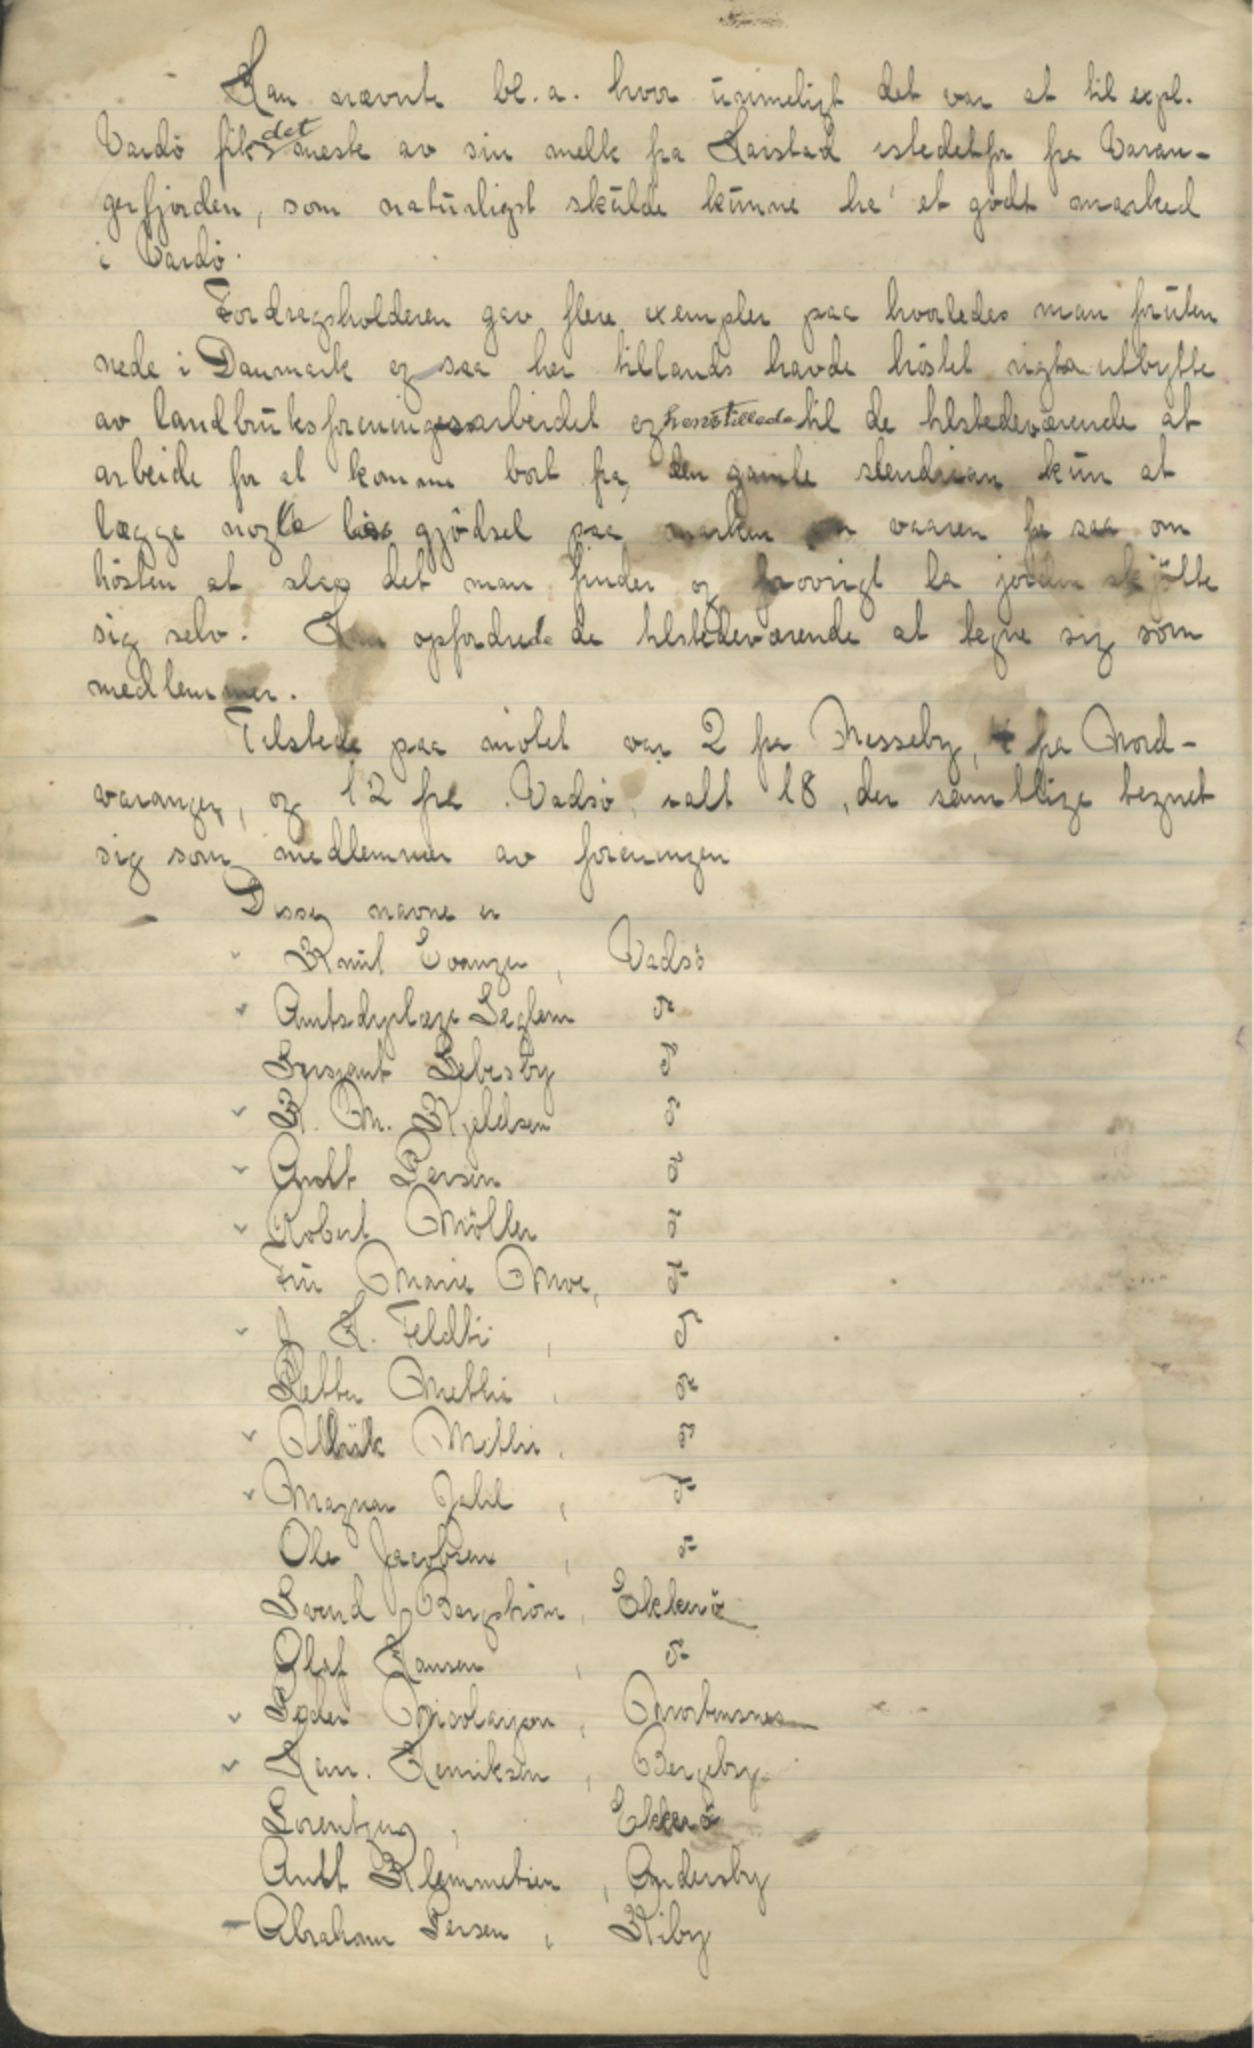 Han nævnte bl. a. hvor urimeligt det var at til expl.
Vardö fik det meste av sin melk fra Harstad istedetfor fra Varan-
gerfjorden, som naturligst skulde kunne ha et godt marked
i Vardö.
Fordragsholderen gav flere exempler paa hvorledes man foruten
nede i Danmark og saa her tillands havde höstet rigta utbytte
av landbruksforeningsarbeidet og henstillede til de tilstedeværende at
arbeide for at komme bort fra den gamle slendrian kun at
lægge nogle lass gjödsel paa marken om vaaren for saa om
hösten at slaa det man finder og forövrigt la jorden skjötte
sig selv. Han opfordrede de tilstedeværende at tegne sig som
medlemmer.
Tilstede paa mötet var 2 fra Nesseby, 4 fra Nord-
varanger, og 12 fra Vadsö, ialt 18, der samtlige tegnet
sig som medlemmer av foreningen
Disses navne er
Knut Evanger, Vadsö
Amtsdyrlæge Seglem do
Sersjant Lebesby do
K. M. Kjeldsen do
Antt Persen do
Robert Möller do
Fru Marie Moe, do
J. H. Feldti, do
Petter Methi, do
Ulrik Methi, do
Magnar Jakil, do
Ole Jacobsen, do
Svend Bergström, Ekkerö
Olaf Hansen, do
Peder Nicolaysen, Mortensnes
Han. Henriksen, Bergeby
Lorentzen, Ekkerö
Antt Klemmetsen, Andersby
Abraham Persen, Kiby